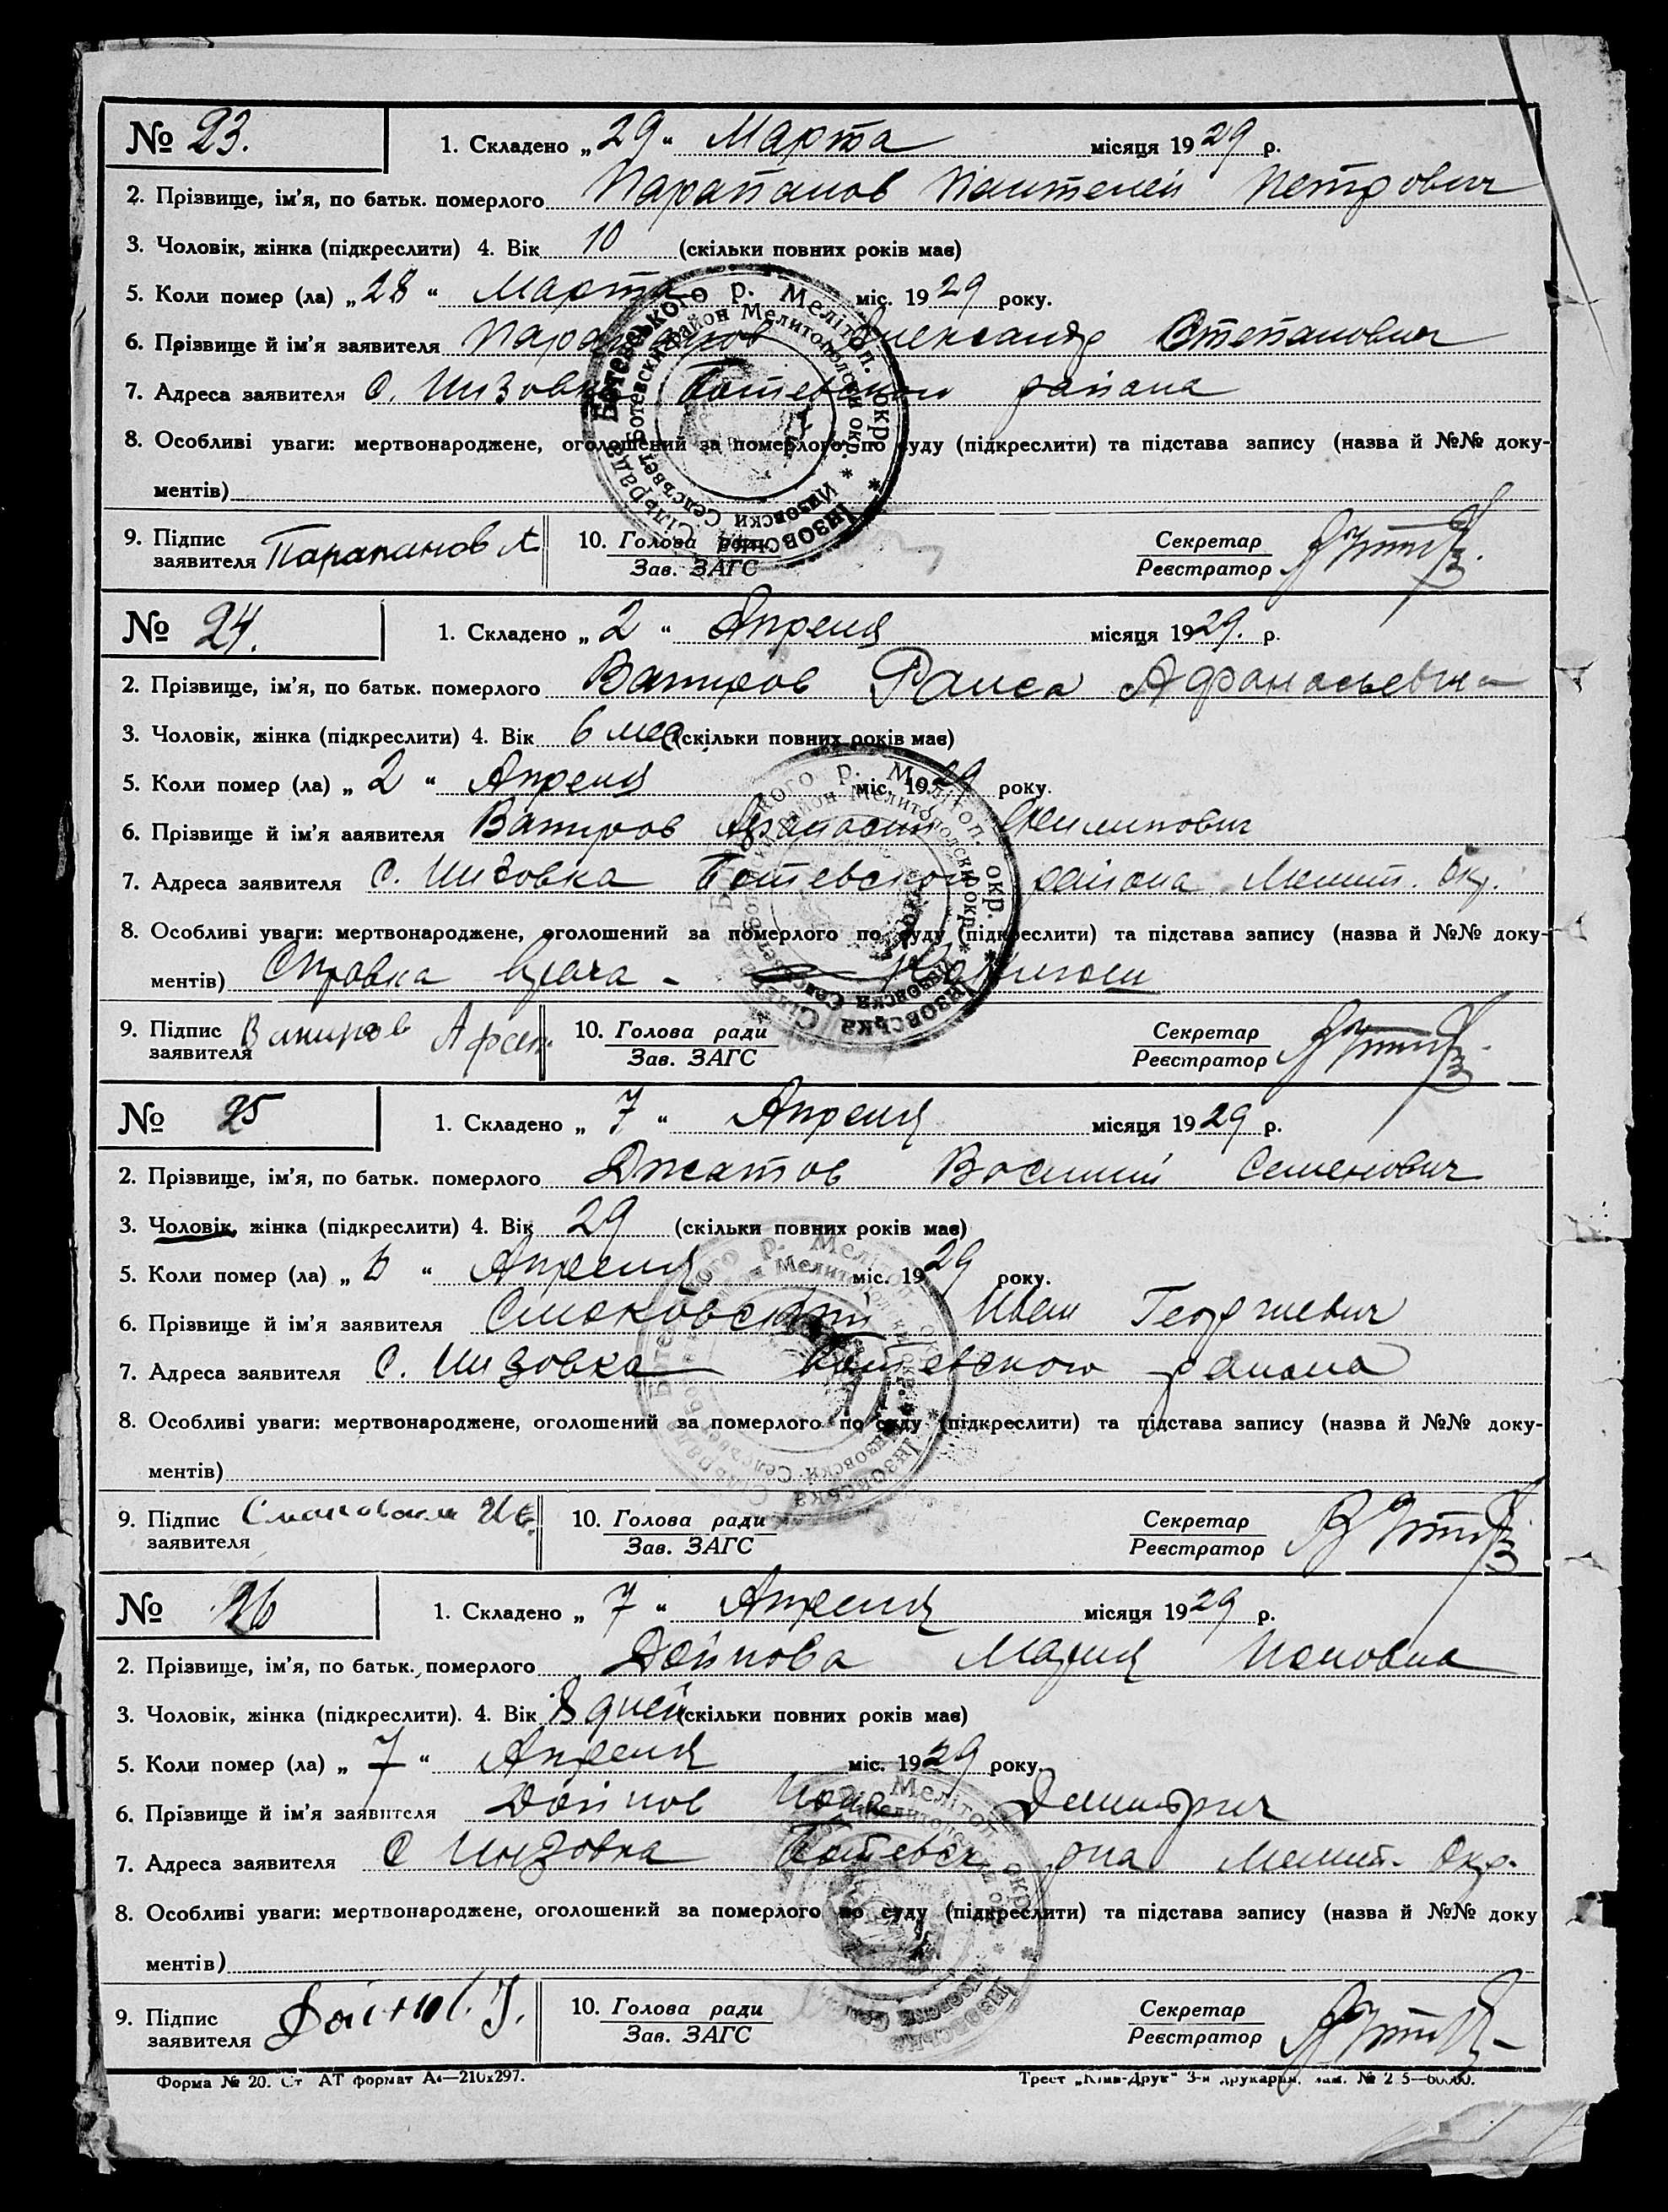 № 23. 1. Складено „29“ Марта місяця 1929 р.
2. Прізвище, ім'я, по батьк. померлого Парапанов Пантелей Петрович
3. Чоловік, жінка (підкреслити) 4. Вік 10 (скільки повних років має)
5. Коли помер (ла) „28“ Марта міс. 1929 року.
6. Прізвище й ім'я заявителя Парапанов Александр Степанович
7. Адреса заявителя С. Инзовка Ботевского района
8. Особливі уваги: мертвонароджене, оголошений за померлого по суду (підкреслити) та підстава запису (назва й №№ доку-
ментів)
9. Підпис заявителя Парапанов А 10. Голова ради Зав. ЗАГС Секретар Реєстратор
№ 24. 1. Складено „2“ Апреля місяця 1929. р.
2. Прізвище, ім'я, по батьк. померлого Вапиров Раиса Афанасьевна
3. Чоловік, жінка (підкреслити) 4. Вік 6 мес (скільки повних років має)
5. Коли помер (ла) „2“ Апреля міс. 1929 року.
6. Прізвище й ім'я заявителя Вапиров Афанасий
7. Адреса заявителя С. Инзовка Ботевского района Мелит. Окр.
8. Особливі уваги: мертвонароджене, оголошений за померлого по суду (підкреслити) та підстава запису (назва й №№ доку-
ментів) Справка врача -
9. Підпис заявителя Вапиров Афан. 10. Голова ради Зав. ЗАГС Секретар Реєстратор
№ 25 1. Складено „7“ Апреля місяця 1929 р.
2. Прізвище, ім'я, по батьк. померлого Джатов Василий Семенович
3. Чоловік, жінка (підкреслити) 4. Вік 29 (скільки повних років має)
5. Коли помер (ла) „6“ Апреля міс. 1929 року.
6. Прізвище й ім'я заявителя Иван Георгиевич
7. Адреса заявителя С. Инзовка Ботевского района
8. Особливі уваги: мертвонароджене, оголошений за померлого по суду (підкреслити) та підстава запису (назва й №№ доку-
ментів)
9. Підпис заявителя 10. Голова ради Зав. ЗАГС Секретар Реєстратор
№ 26 1. Складено „7“ Апреля місяця 1929 р.
2. Прізвище, ім'я, по батьк. померлого Дойнова Мария
3. Чоловік, жінка (підкреслити). 4. Вік 8 дней (скільки повних років має)
5. Коли помер (ла) „7“ Апреля міс. 1929 року.
6. Прізвище й ім'я заявителя Дойнов
7. Адреса заявителя С Инзовка Ботевск рна Мелит. Окр.
8. Особливі уваги: мертвонароджене, оголошений за померлого по суду (підкреслити) та підстава запису (назва й №№ доку
ментів)
9. Підпис заявителя Дойнов. 10. Голова ради Зав. ЗАГС Секретар Реєстратор
Форма № 20. Ст АТ формат А4—210х297. Трест „Київ-Друк“ 3-я друкарня.